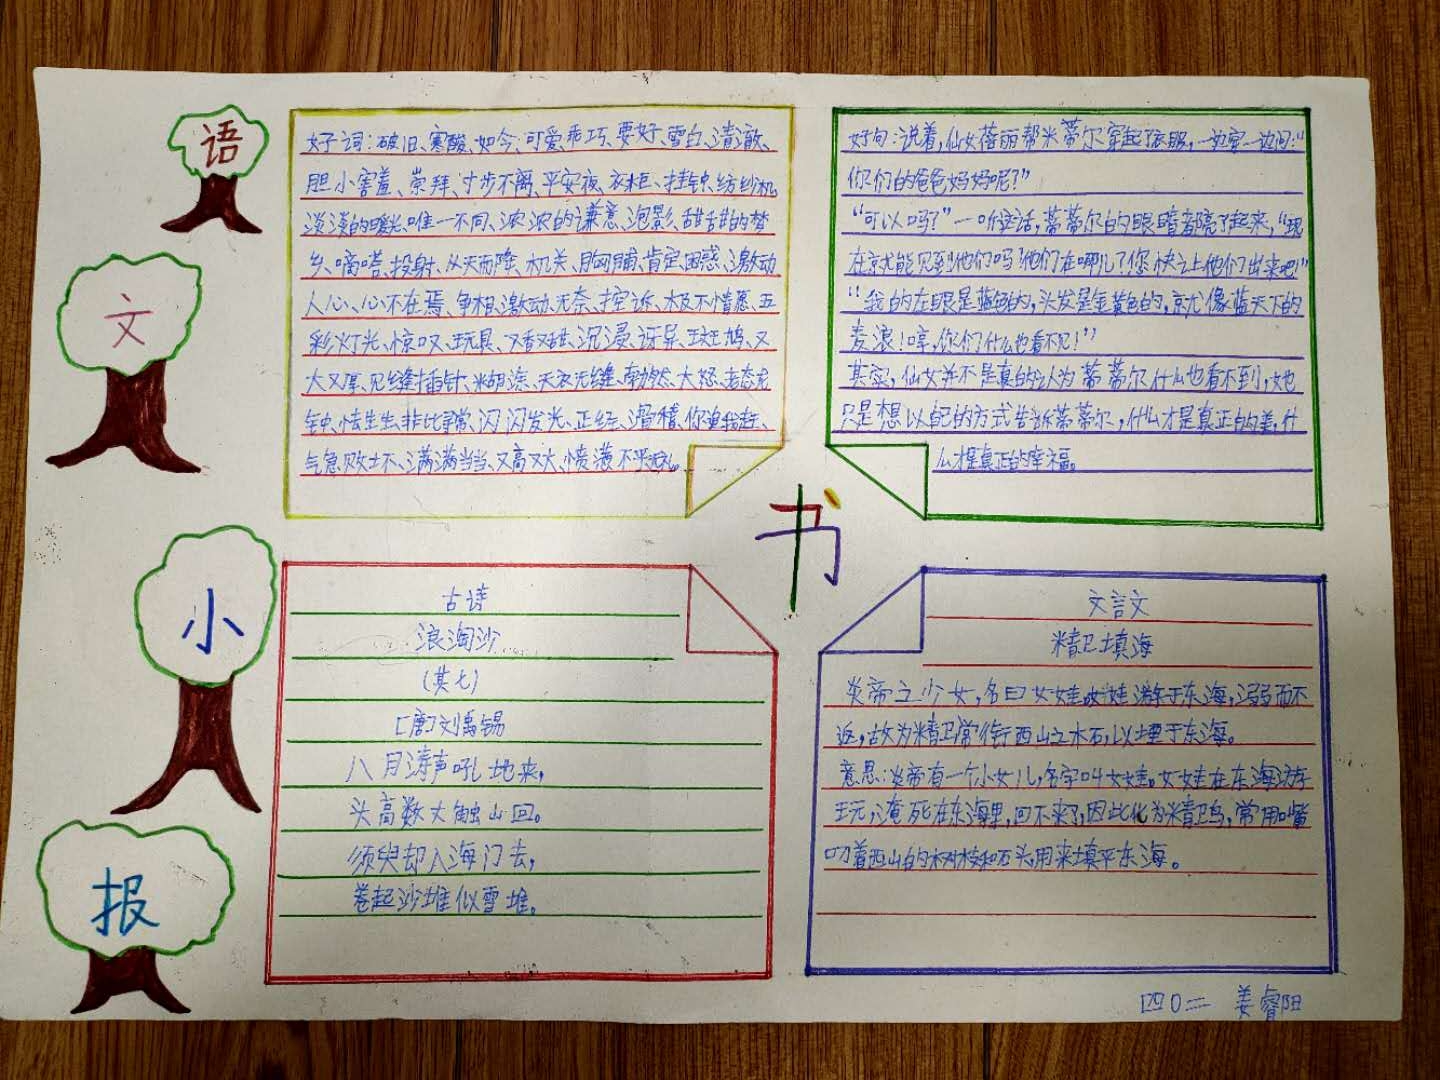 语
文
小
报
好词：破旧、寒酸、如今、可爱、乖巧、要好、雪白、清澈、
胆小害羞、崇拜、寸步不离、平安夜、衣柜、挂钟、纺纱机
淡淡的暖光、唯一不同、浓浓的谦意、泡影、甜甜的梦
乡、嘀嗒、投射、从天而降、机关、胸脯、肯定、困惑、激动
人心、心不在焉、争相、激动、无奈、控诉、极不情愿、五
彩灯光、惊叹、玩具、又香又甜、沉浸、讶异、斑鸠、又
大又厚、见缝插针、糊涂、天衣无缝、勃然大怒、老态龙
钟、怯生生、非比寻常、闪闪发光、正经、滑稽、你追我赶、
气急败坏、满满当当、又高又大、愤愤不平
好句：说着，仙女蓓丽帮米蒂尔穿起了衣服，一边穿一边问："
你们的爸爸妈妈呢？"
"可以吗？"一听这话，蒂蒂尔的眼睛都亮了起来，"现
在就能见到他们吗？他们在哪儿？您快让他们出来吧！"
"我的左眼是蓝色的，头发是金黄色的，就像蓝天下的
麦浪！哼，你们什么也看不见！"
其实，仙女并不是真的认为蒂蒂尔什么也看不到，她
只是想以自己的方式告诉蒂蒂尔，什么才是真正的美，什
么才是真正的幸福。
书
古诗
浪淘沙
（其七）
［唐］刘禹锡
八月涛声吼地来，
头高数丈触山回。
须臾却入海门去，
卷起沙堆似雪堆。
文言文
精卫填海
炎帝之少女，名曰女娃。女娃游于东海，溺而不
返，故为精卫，常衔西山之木石，以堙于东海。
意思：炎帝有一个小女儿，名字叫女娃。女娃在东海游
玩，淹死在东海里，回不来了，因此化为精卫鸟，常用嘴
叼着西山的树枝和石头，用来填平东海。
四0二 姜睿阳